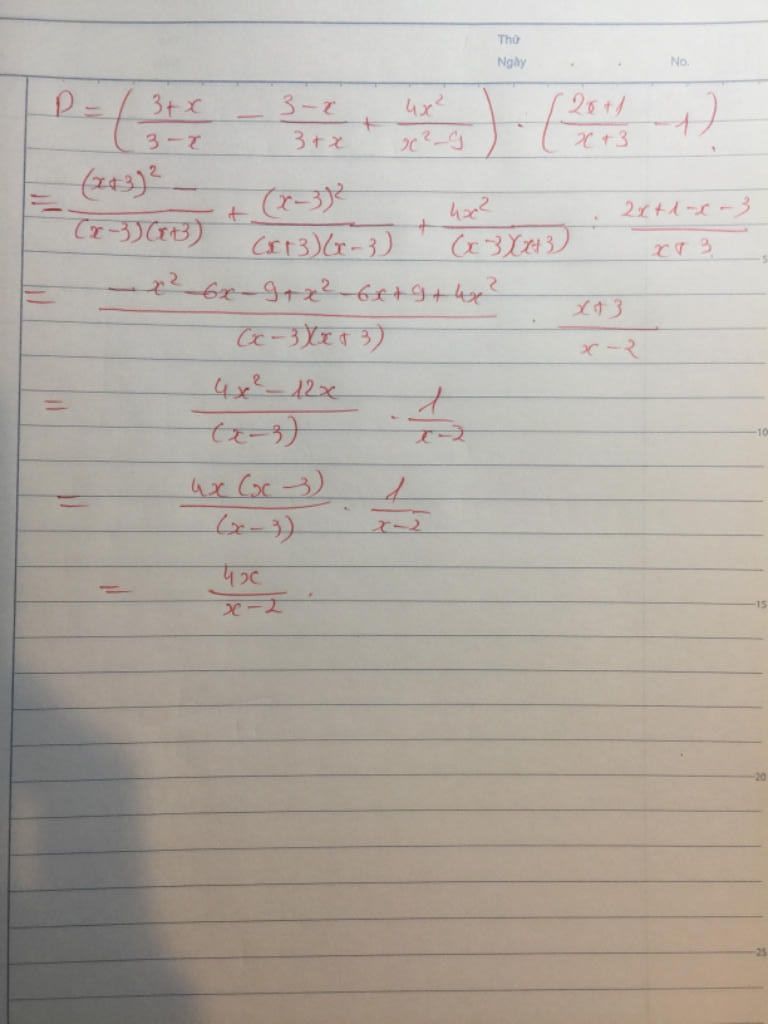 Thứ
Ngày . . No.
P = ( (3+x)/(3-x) - (3-x)/(3+x) + 4x²/(x²-9) ) : ( (2x+1)/(x+3) - 1 ).
= (x+3)² - /(x-3)(x+3) + (x-3)²/(x+3)(x-3) + 4x²/(x-3)(x+3) : (2x+1-x-3)/(x+3)
5
= (-x²-6x-9+x²-6x+9+4x²)/(x-3)(x+3) . (x+3)/(x-2)
= (4x²-12x)/(x-3) . 1/(x-2)
10
= 4x(x-3)/(x-3) . 1/(x-2)
= 4x/(x-2) .
15
20
25